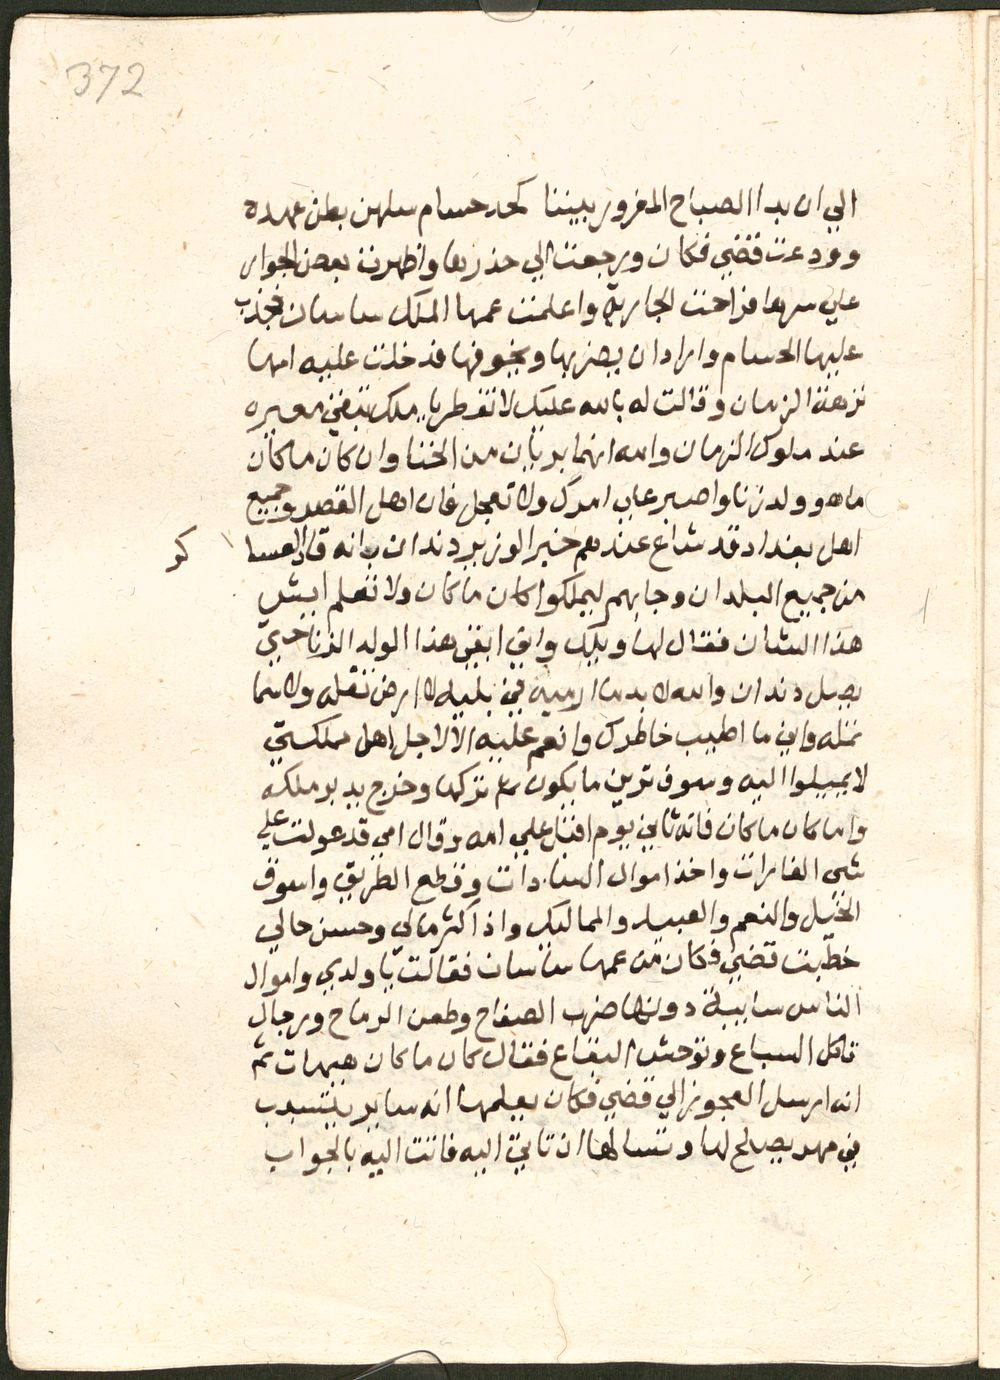 372
الي ان بدا الصباح المغرور بيننا كحد حسام سلهن بطن عهده
وودعت قضي فكان ورجعت الي خدرها واظهرت بعض الجوار
علي سرها فراحت الجارية واعلمت عمها الملك ساسان فجذب
عليها الحسام واراد ان يضربها ويخوفها فدخلت عليه امها
نزهة الزمان وقالت له بالله عليك لا تفرط يا ملك تبقي معيره
عند ملوك الزمان والله انهما بريان من الخنا وان كان ماكان
ما هو ولد زنا واصبر علي امرك ولا تعجل فان اهل القصر وجميع
اهل بغداد قد شاع عندهم خبر الوزير دندان بانه قاد العسا كر
من جميع البلدان وجابهم ليملكوا كان ما كان ولا تعلم ايش
هذا الشان فقال لها ويلك واني ابقي هذا الولد الزنا حتي
يصل دندان والله لا بد ما ارميه في بلية لا ارض تقله ولا سما
تظله واني ما اطيب خاطرك وانعم عليه الا لاجل اهل مملكتي
لا يميلوا اليه وسوف ترين ما يكون ثم تركها وخرج يدبر ملكه
واما كان ما كان فانه ثاني يوم اقبل علي امه وقال امي قد عولت علي
شن الغارات واخذ اموال السادات وقطع الطريق واسوق
الخيل والنعم والعبيد والمماليك واذا كثر مالي وحسن حالي
خطبت قضي فكان من عمها ساسان فقالت يا ولدي واموال
الناس سايبة دونها ضرب الصفاح وطعن الرماح ورجال
تاكل السباع وتوحش البقاع فقال كان ما كان هيهات ثم
انه ارسل العجوز الي قضي فكان يعلمها انه ساير يتسبب
في مهر يصلح لها وتسالها ان تاتي اليه فاتت اليه بالجواب